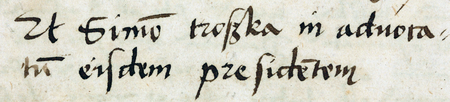 Et Simō troſzka in aduoca=
tū eiſdem preſidētem